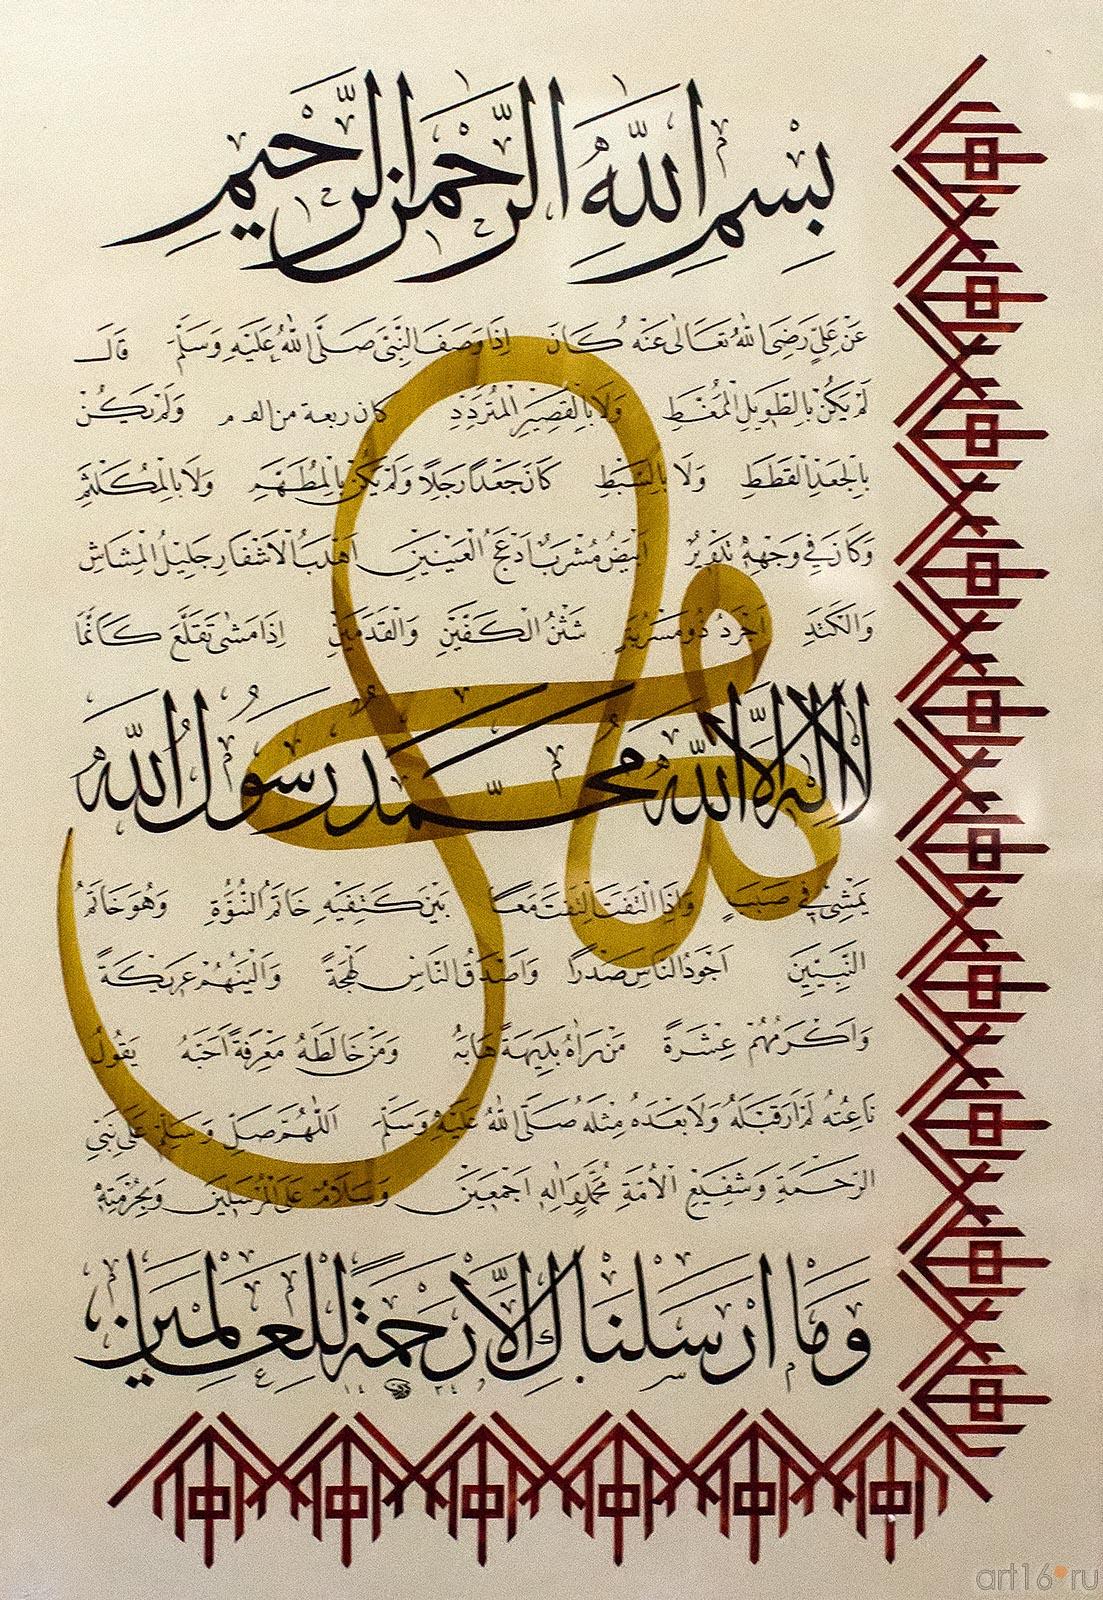 بِسْمِ اللهِ الرَّحْمٰنِ الرَّحِيْمِ
عَنْ عَلِيٍّ رَضِيَ اللهُ تَعَالٰى عَنْهُ كَانَ اِذَا وَصَفَ النَّبِيَّ صَلَّى اللهُ عَلَيْهِ وَسَلَّمَ قَالَ
لَمْ يَكُنْ بِالطَّوِيلِ الْمُمَّغِطِ وَلَا بِالْقَصِيرِ الْمُتَرَدِّدِ كان ربعة من القوم وَلَمْ يَكُنْ
بِالْجَعْدِ الْقَطَطِ وَلَا بِالسَّبَطِ كَانَ جَعْدًا رَجِلًا وَلَمْ يَكُنْ بِالْمُطَهَّمِ وَلَا بِالْمُكَلْثَمِ
وَكَانَ فِي وَجْهِهِ تَدْوِيرٌ اَبْيَضُ مُشْرَبٌ اَدْعَجُ الْعَيْنَيْنِ اَهْدَبُ الْاَشْفَارِ جَلِيْلُ الْمُشَاشِ
وَالْكَتَدِ اَجْرَدُ ذُو مَسْرُبَةٍ شَثْنُ الْكَفَّيْنِ وَالْقَدَمَيْنِ اِذَا مَشٰى تَقَلَّعَ كَاَنَّمَا
لَا اِلٰهَ اِلَّا اللهُ مُحَمَّدٌ رَسُولُ اللهِ
يَمْشِي فِي صَبَبٍ وَاِذَا الْتَفَتَ الْتَفَتَ مَعًا بَيْنَ كَتِفَيْهِ خَاتَمُ النُّبُوَّةِ وَهُوَ خَاتَمُ
النَّبِيِّينَ اَجْوَدُ النَّاسِ صَدْرًا وَاَصْدَقُ النَّاسِ لَهْجَةً وَاَلْيَنُهُمْ عَرِيكَةً
وَاَكْرَمُهُمْ عِشْرَةً مَنْ رَاٰهُ بَدِيهَةً هَابَهُ وَمَنْ خَالَطَهُ مَعْرِفَةً اَحَبَّهُ يَقُولُ
نَاعِتُهُ لَمْ اَرَ قَبْلَهُ وَلَا بَعْدَهُ مِثْلَهُ صَلَّى اللهُ عَلَيْهِ وَسَلَّمَ اَللّٰهُمَّ صَلِّ وَسَلِّمْ عَلٰى نَبِيِّ
الرَّحْمَةِ وَشَفِيْعِ الْاُمَّةِ مُحَمَّدٍ وَاٰلِهِ اَجْمَعِيْنَ وَسَلَامٌ عَلَى الْمُرْسَلِيْنَ وَبِحُرْمَتِهِ
وَمَا اَرْسَلْنَاكَ اِلَّا رَحْمَةً لِلْعَالَمِيْنَ
art16.ru